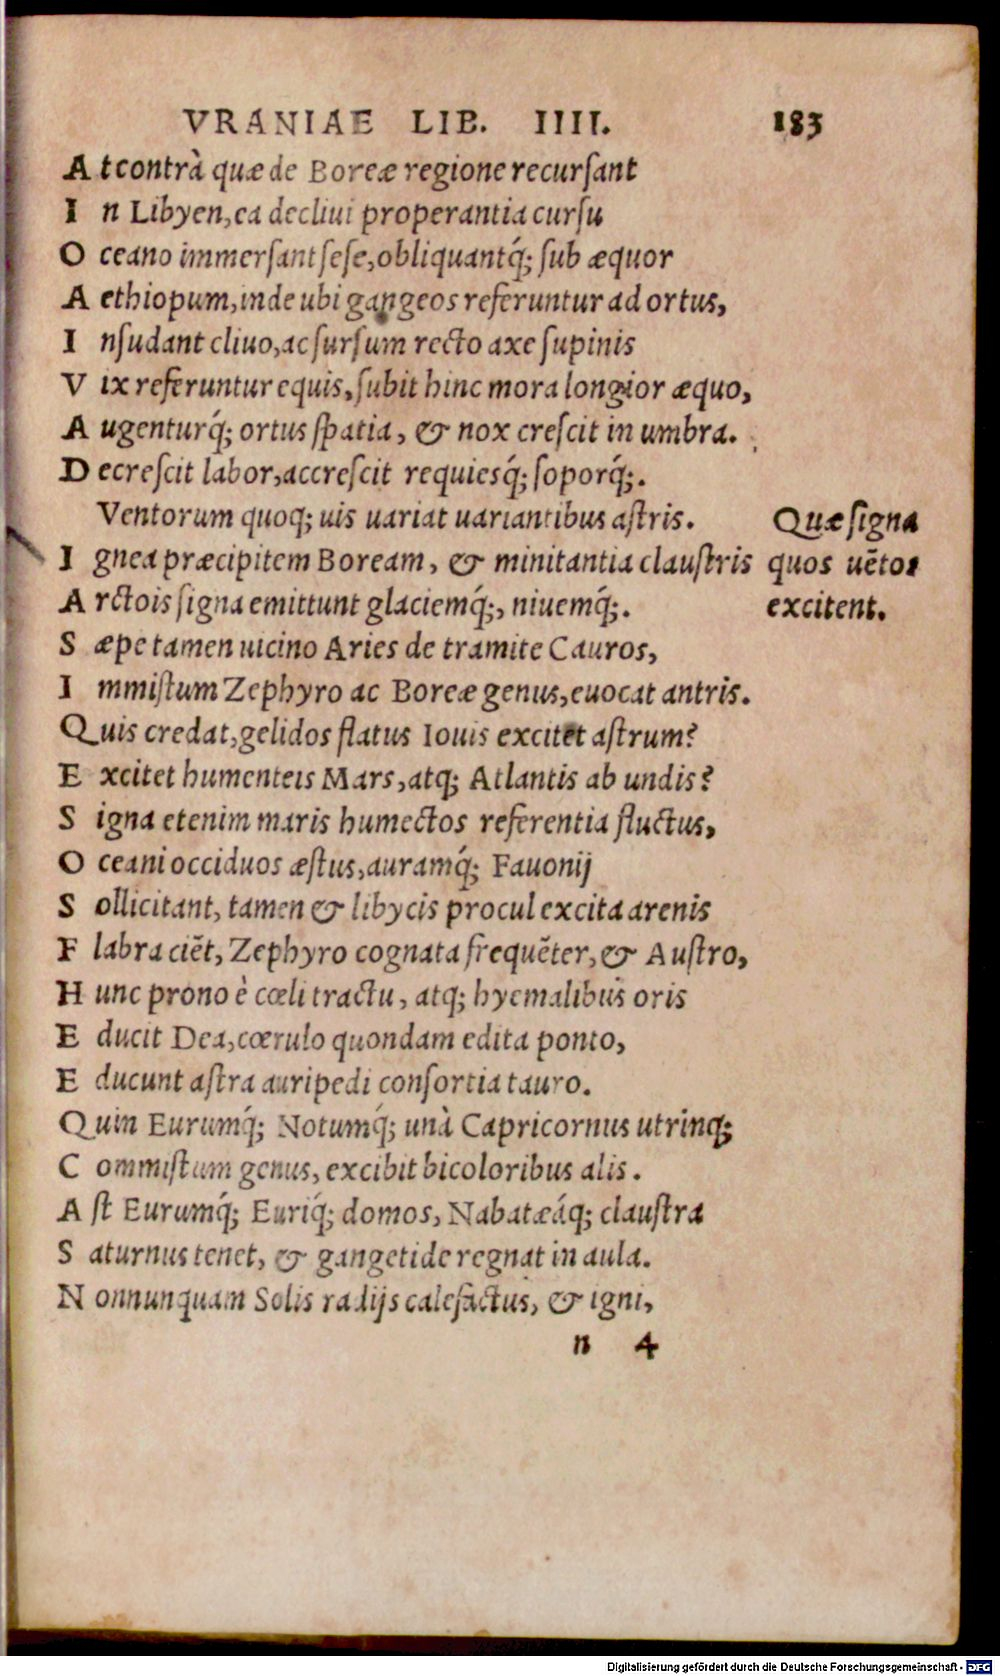 VRANIAE LIB. IIII. 183
A t contrà quæ de Boreæ regione recursant
I n Libyen, ea decliui properantia cursu
O ceano immersant sese, obliquantq́; sub æquor
A ethiopum, inde ubi gangeos referuntur ad ortus,
I nsudant cliuo, ac sursum recto axe supinis
V ix referuntur equis, subit hinc mora longior æquo,
A ugenturq́; ortus spatia, & nox crescit in umbra.
D ecrescit labor, accrescit requiesq́; soporq́;.
Ventorum quoq; uis uariat uariantibus astris.
Quæ signa
I gnea præcipitem Boream, & minitantia claustris
quos uẽtos
A rctois signa emittunt glaciemq́;, niuemq́;.
excitent.
S æpe tamen uicino Aries de tramite Cauros,
I mmistum Zephyro ac Boreæ genus, euocat antris.
Quis credat, gelidos flatus Iouis excitet astrum?
E xcitet humenteis Mars, atq; Atlantis ab undis?
S igna etenim maris humectos referentia fluctus,
O ceani occiduos æstus, auramq́; Fauonij
S ollicitant, tamen & libycis procul excita arenis
F labra ciẽt, Zephyro cognata frequẽter, & Austro,
H unc prono è cœli tractu, atq; hyemalibus oris
E ducit Dea, cœrulo quondam edita ponto,
E ducunt astra auripedi consortia tauro.
Quin Eurumq́; Notumq́; unà Capricornus utrinq;
C ommistum genus, excibit bicoloribus alis.
A st Eurumq́; Euriq́; domos, Nabatæáq; claustra
S aturnus tenet, & gangetide regnat in aula.
N onnunquam Solis radijs calefactus, & igni,
n 4
Digitalisierung gefördert durch die Deutsche Forschungsgemeinschaft - DFG